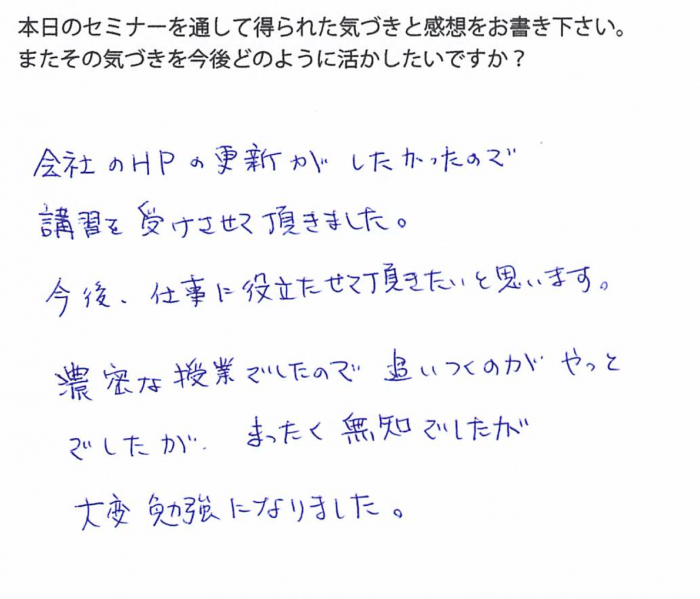 本日のセミナーを通して得られた気づきと感想をお書き下さい。
またその気づきを今後どのように活かしたいですか？
会社のHPの更新がしたかったので
講習を受けさせて頂きました。
今後、仕事に役立たせて頂きたいと思います。
濃密な授業でしたので追いつくのがやっと
でしたが、まったく無知でしたが
大変勉強になりました。